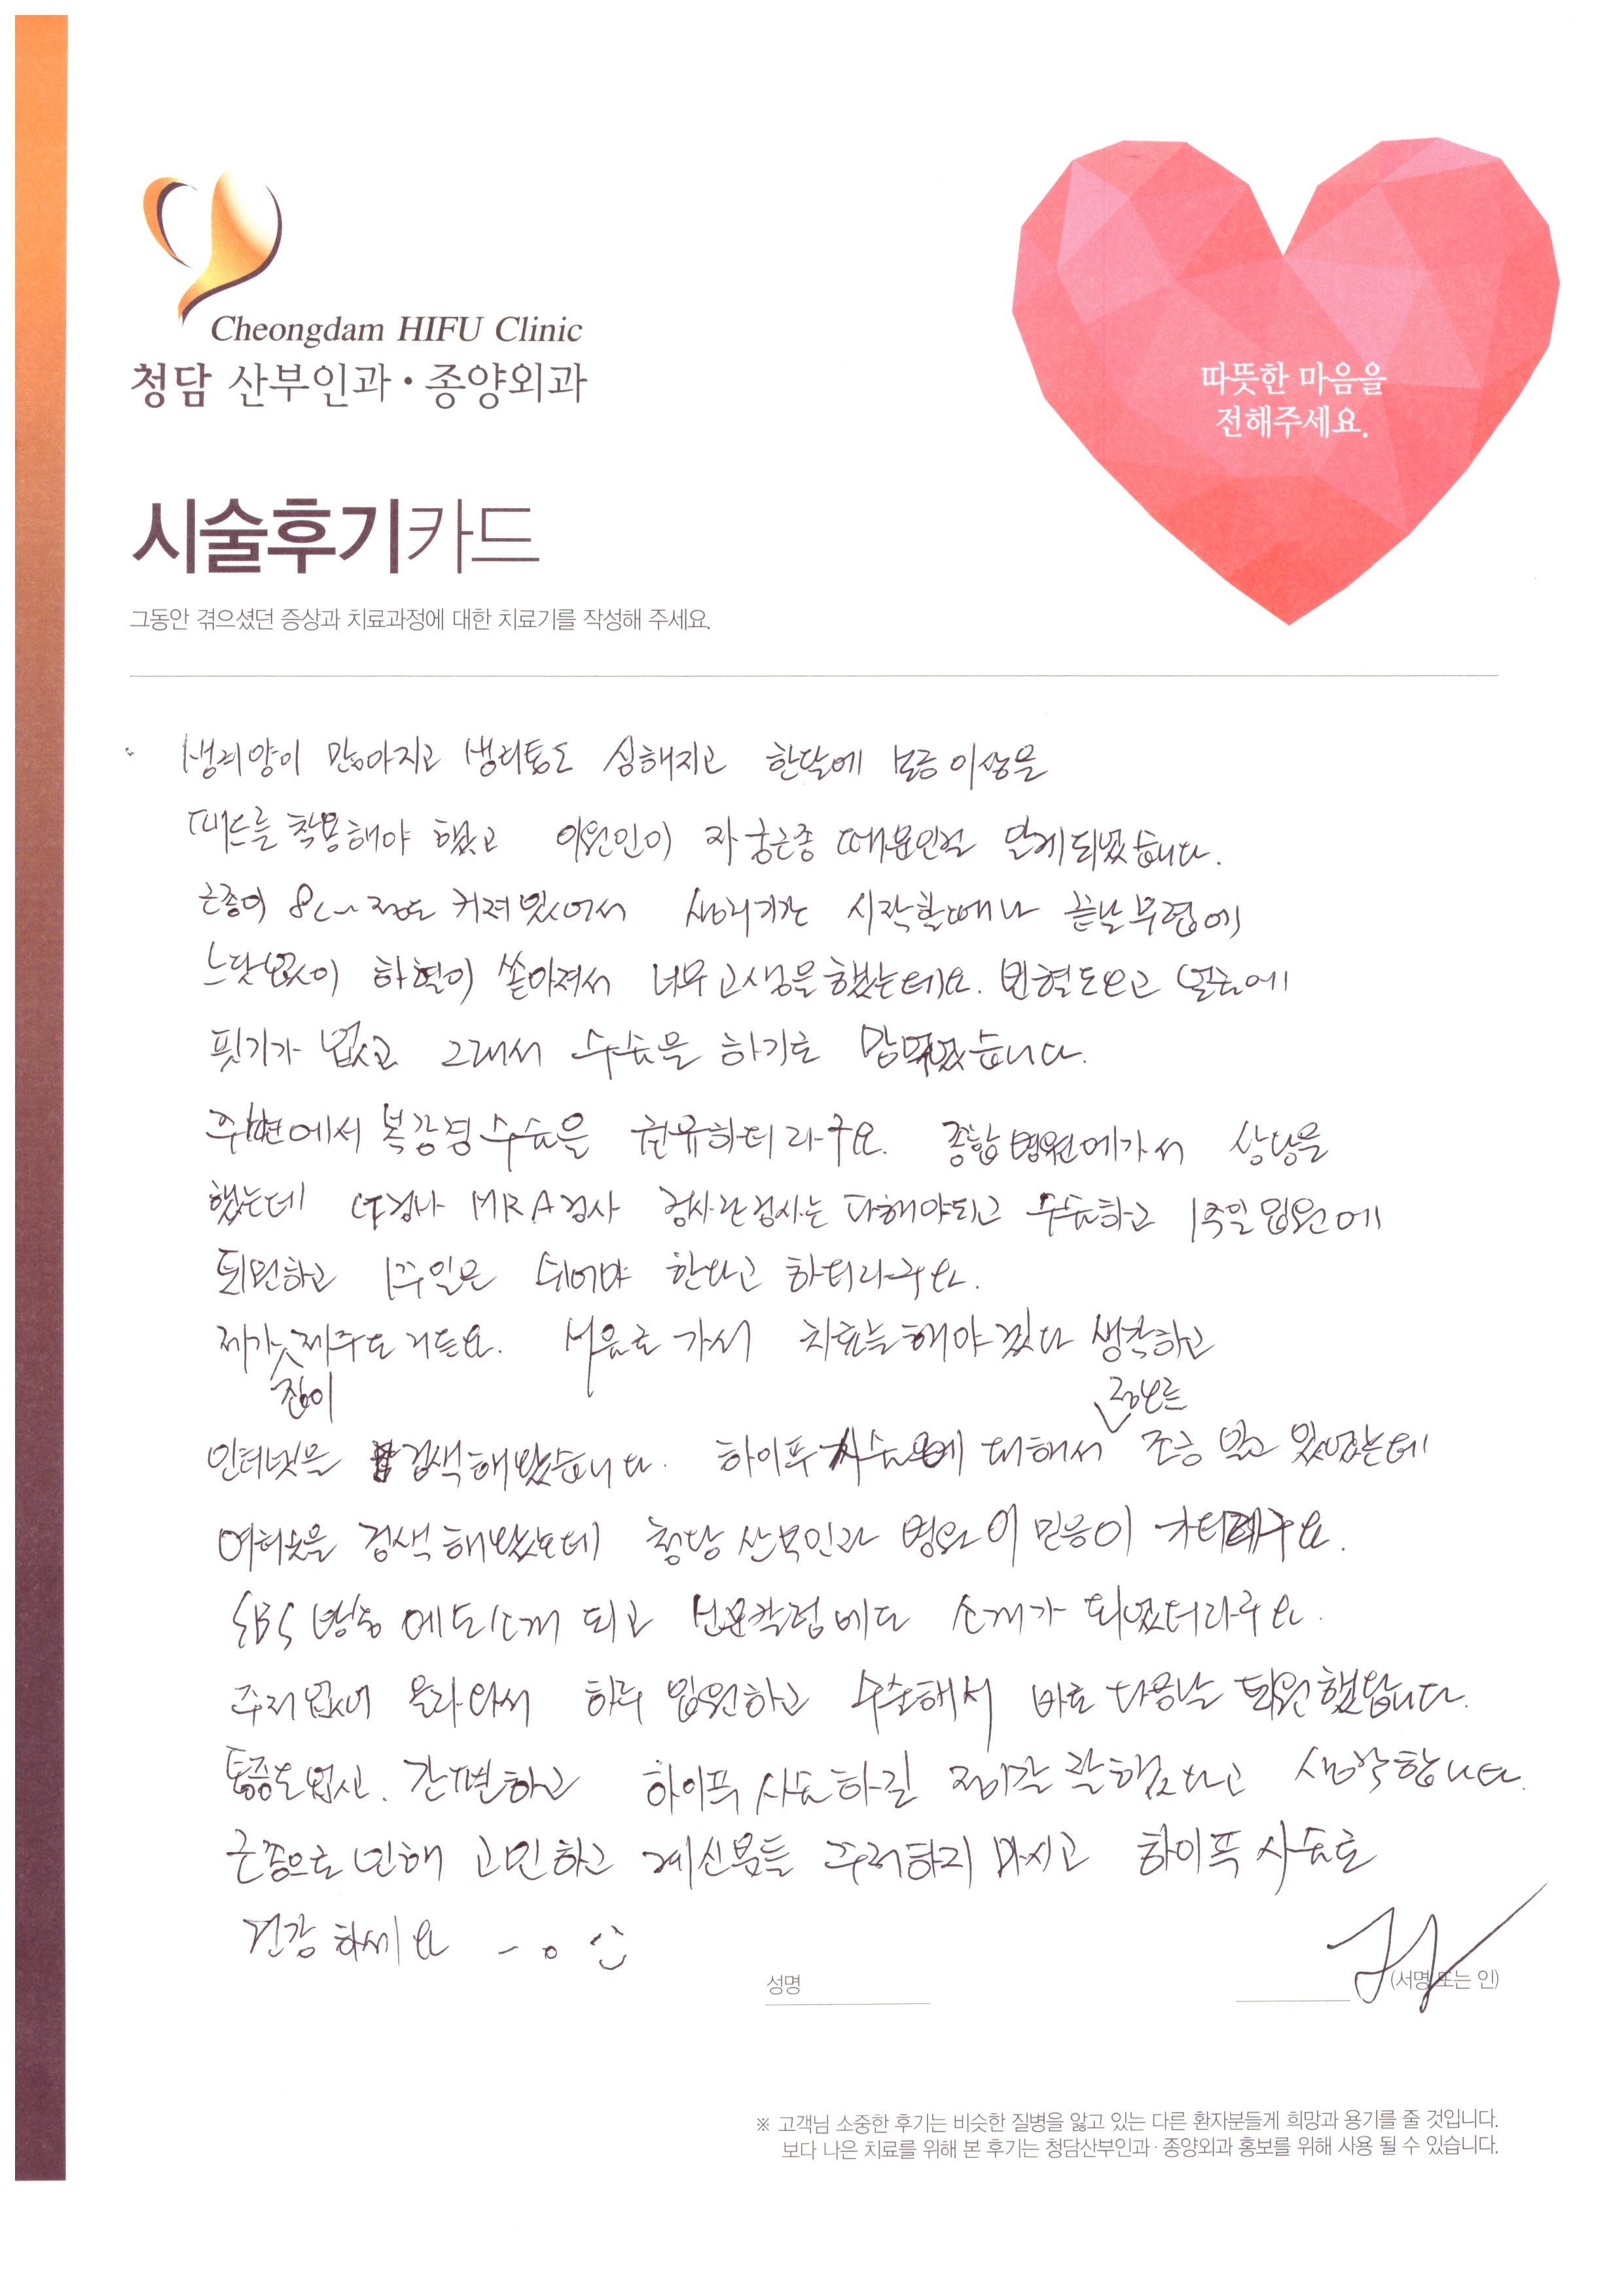 Cheongdam HIFU Clinic
청담 산부인과·종양외과
따뜻한 마음을
전해주세요.
시술후기카드
그동안 겪으셨던 증상과 치료과정에 대한 치료기를 작성해 주세요.
생리양이 많아지고 생리통도 심해지고 한달에 보름 이상을
패드를 착용해야 했고 이원인이 자궁근종 때문인걸 알게되었습니다.
근종이 8cm 정도 커져 있어서 생리기간 시작할때나 끝날무렵에
느닷없이 하혈이 쏟아져서 너무고생을했는데요. 빈혈도오고 얼굴에
핏기가 없고 그래서 수술을 하기로 맘먹었습니다.
주변에서 복강경수술을 권유하더라구요. 종합병원에가서 상담을
했는데 CT검사 MRA검사 검사란검사는 다해야되고 수술하고 1주일 입원에
퇴원하고 1주일은 쉬어야 한다고 하더라구요.
제가 집이 제주도거든요. 서울로 가서 치료를해야겠다 생각하고
인터넷을 검색해봤습니다. 하이푸시술에 대해서 정보를 조금 알고 있었는데
여러곳을 검색해봤는데 청담산부인과 병원이 믿음이 가더라구요.
SBS 방송에도 소개되고 신문칼럼에도 소개가 되었더라구요.
주저없이 올라와서 하루 입원하고 수술해서 바로 다음날 퇴원했답니다.
통증도없고. 간편하고 하이푸시술하길 정말 잘했다고 생각합니다.
근종으로 인해 고민하고 계신분들 주저하지 마시고 하이푸시술로
건강하세요
성명
(서명 또는 인)
※ 고객님 소중한 후기는 비슷한 질병을 앓고 있는 다른 환자분들게 희망과 용기를 줄 것입니다.
보다 나은 치료를 위해 본 후기는 청담산부인과·종양외과 홍보를 위해 사용 될 수 있습니다.